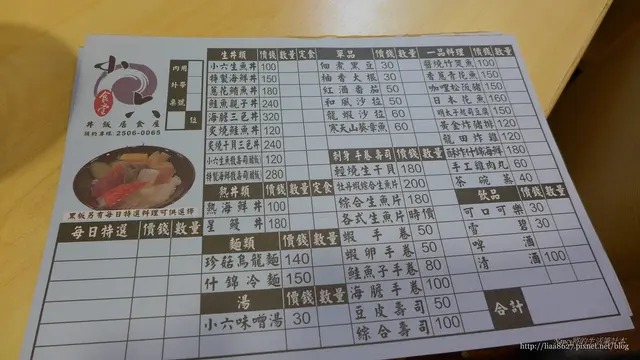 小六
食堂
丼飯居食屋
預約專線:2506-0065
內用
外帶
桌號
位
黑板另有每日特選料理可供選擇
每日特選 價錢 數量
生丼類 價錢 數量 定食
小六生魚丼 100
特製海鮮丼 150
蔥花鮪魚丼 180
鮭魚親子丼 240
海膽三色丼 320
炙燒鮭魚丼 120
炙燒干貝三色丼 240
小六生散壽司 120
特製海鮮散壽司 280
熟丼類 價錢 數量 定食
熟海鮮丼 100
星鰻丼 180
麵類 價錢 數量
珍菇烏龍麵 140
什錦冷麵 150
湯 價錢 數量
小六味噌湯 30
單品 價錢 數量
佃煮黑豆 30
柚香大根 30
紅酒番茄 50
和風沙拉 50
龍蝦沙拉 60
寒天山葵章魚 60
刺身手卷壽司 價錢 數量
輕燒生干貝 180
牡丹蝦綜合生魚片 200
綜合生魚片 180
各式生魚片 時價
蝦手卷 50
蝦卵手卷 50
鮭魚子手卷 80
海膽手卷 100
豆皮壽司 50
綜合壽司 100
一品料理 價錢 數量
醬燒竹筴魚 100
香蔥青花魚 150
咖哩松阪豬 150
日本花魚 160
明太子起司豆腐 150
黃金炸豬排 120
龍田炸雞 120
酥炸什錦海鮮 180
手工雞肉丸 60
茶碗蒸 40
飲品 價錢 數量
可口可樂 30
雪碧 30
啤酒
清酒 100
合計
http://liaa8627.pixnet.net/blog